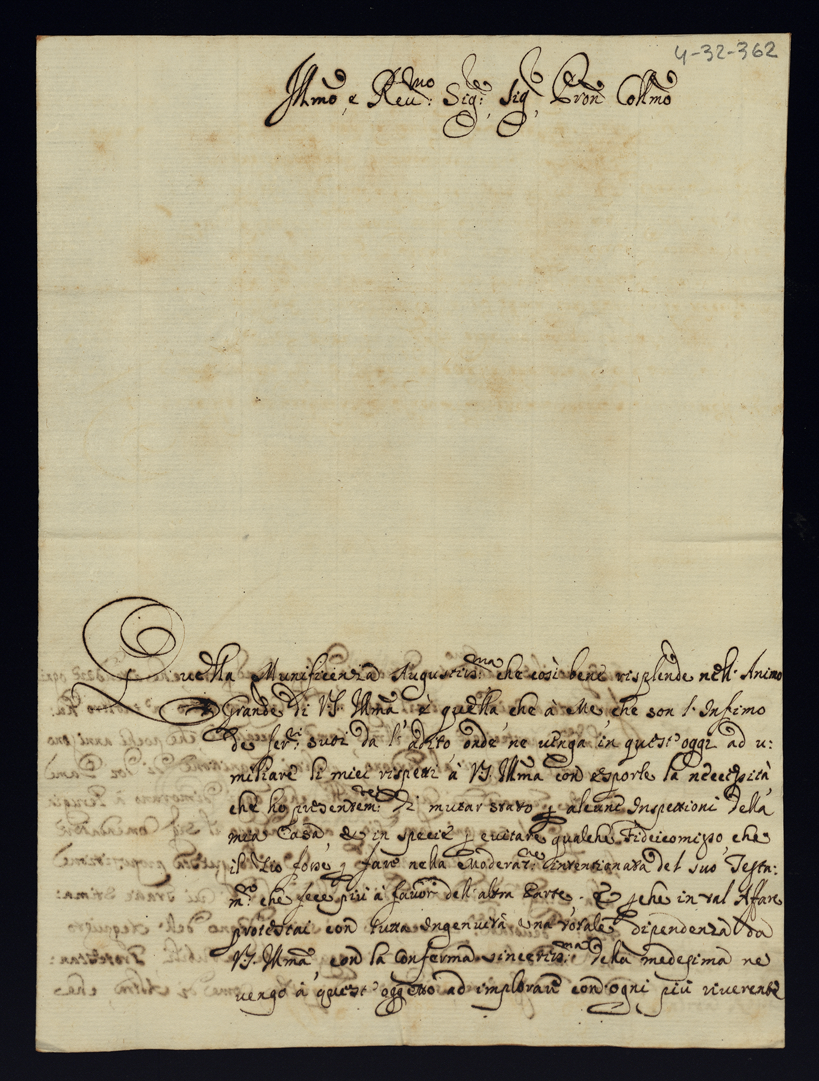 4-32-362
Illmo, e Reu:mo Sig:re Sig Pron Collmo
Quella Munificenza Augustiss:ma che così bene risplende nell'Animo
Grande di VS Illma è quella che à Me che son l'Infimo
de Seri suoi da l'adito onde ne uenga in quest'oggi ad u:
miliare li miei rispetti à VS Illma con esporle la necessità
che ho presentem:te di mutar stato p alcune Inspettioni della
mia Casa, & in specie p euitare qualche Fideicomisso che
il Zio forse p fare nella Moderat:ne intentionata del suo Testa:
m:to che fece più à fauor dell'altra Parte. E pche in tal Affare
protestai con tutta ingenuità una totale dipendenza da
VS Illma con la Conferma sinceriss:ma della medesima ne
uengo à quest'oggetto ad implorare con ogni più riuerente